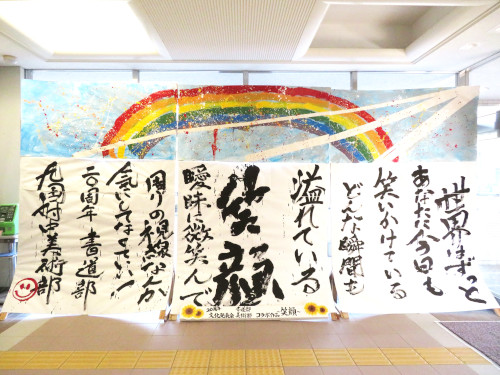 世界はずっと
あなたに今日も
笑いかけている
どんな瞬間も
溢れている
笑顔
曖昧に微笑んで
周りの視線なんか
二〇周年 書道部
美術部
20周年 書道部
文化発表会 美術部 コラボ作品 笑顔